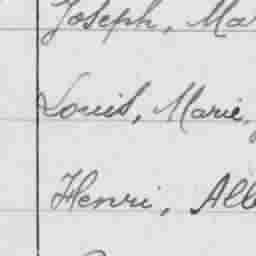 Joseph, Ma
Louis, Marie,
Henri, Alb